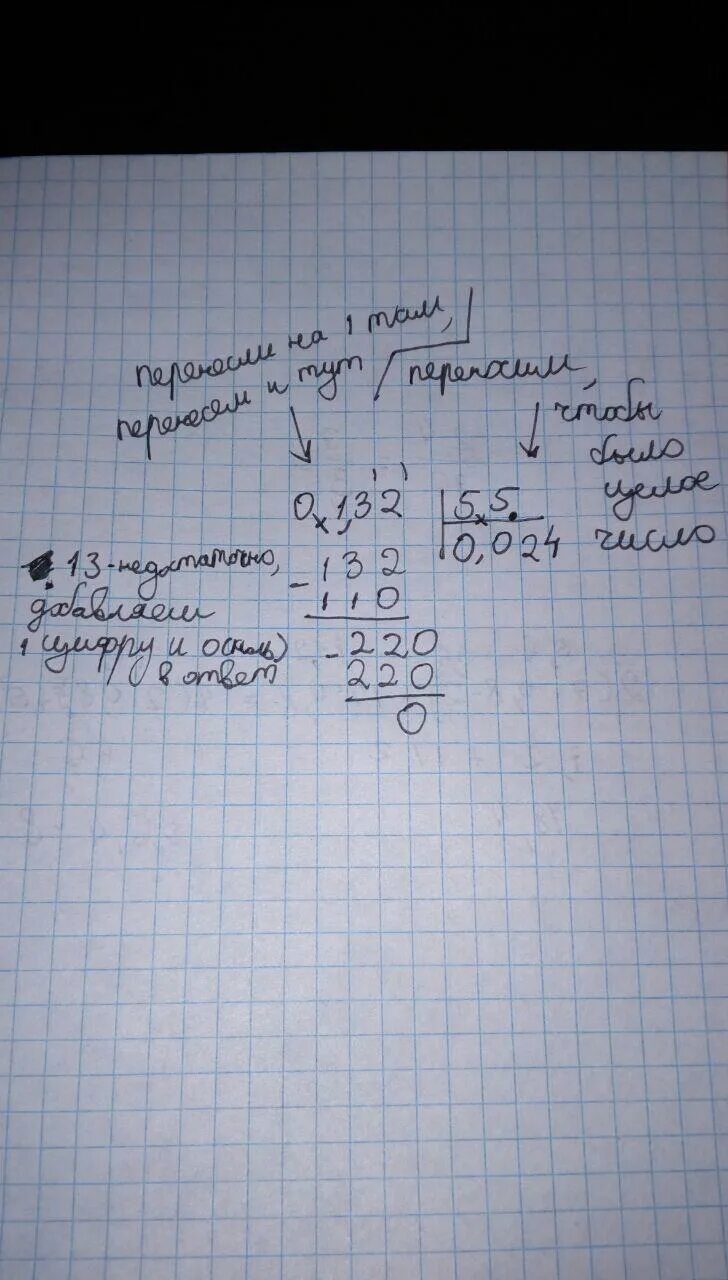 перенесли на 1 там,
перенесем и тут
переносим,
чтобы
было
целое
число
0,1,32 | 5,5.
0,024
13 - недостаточно,
добавляем
1 цифру и
в ответ
- 132
110
- 220
220
0